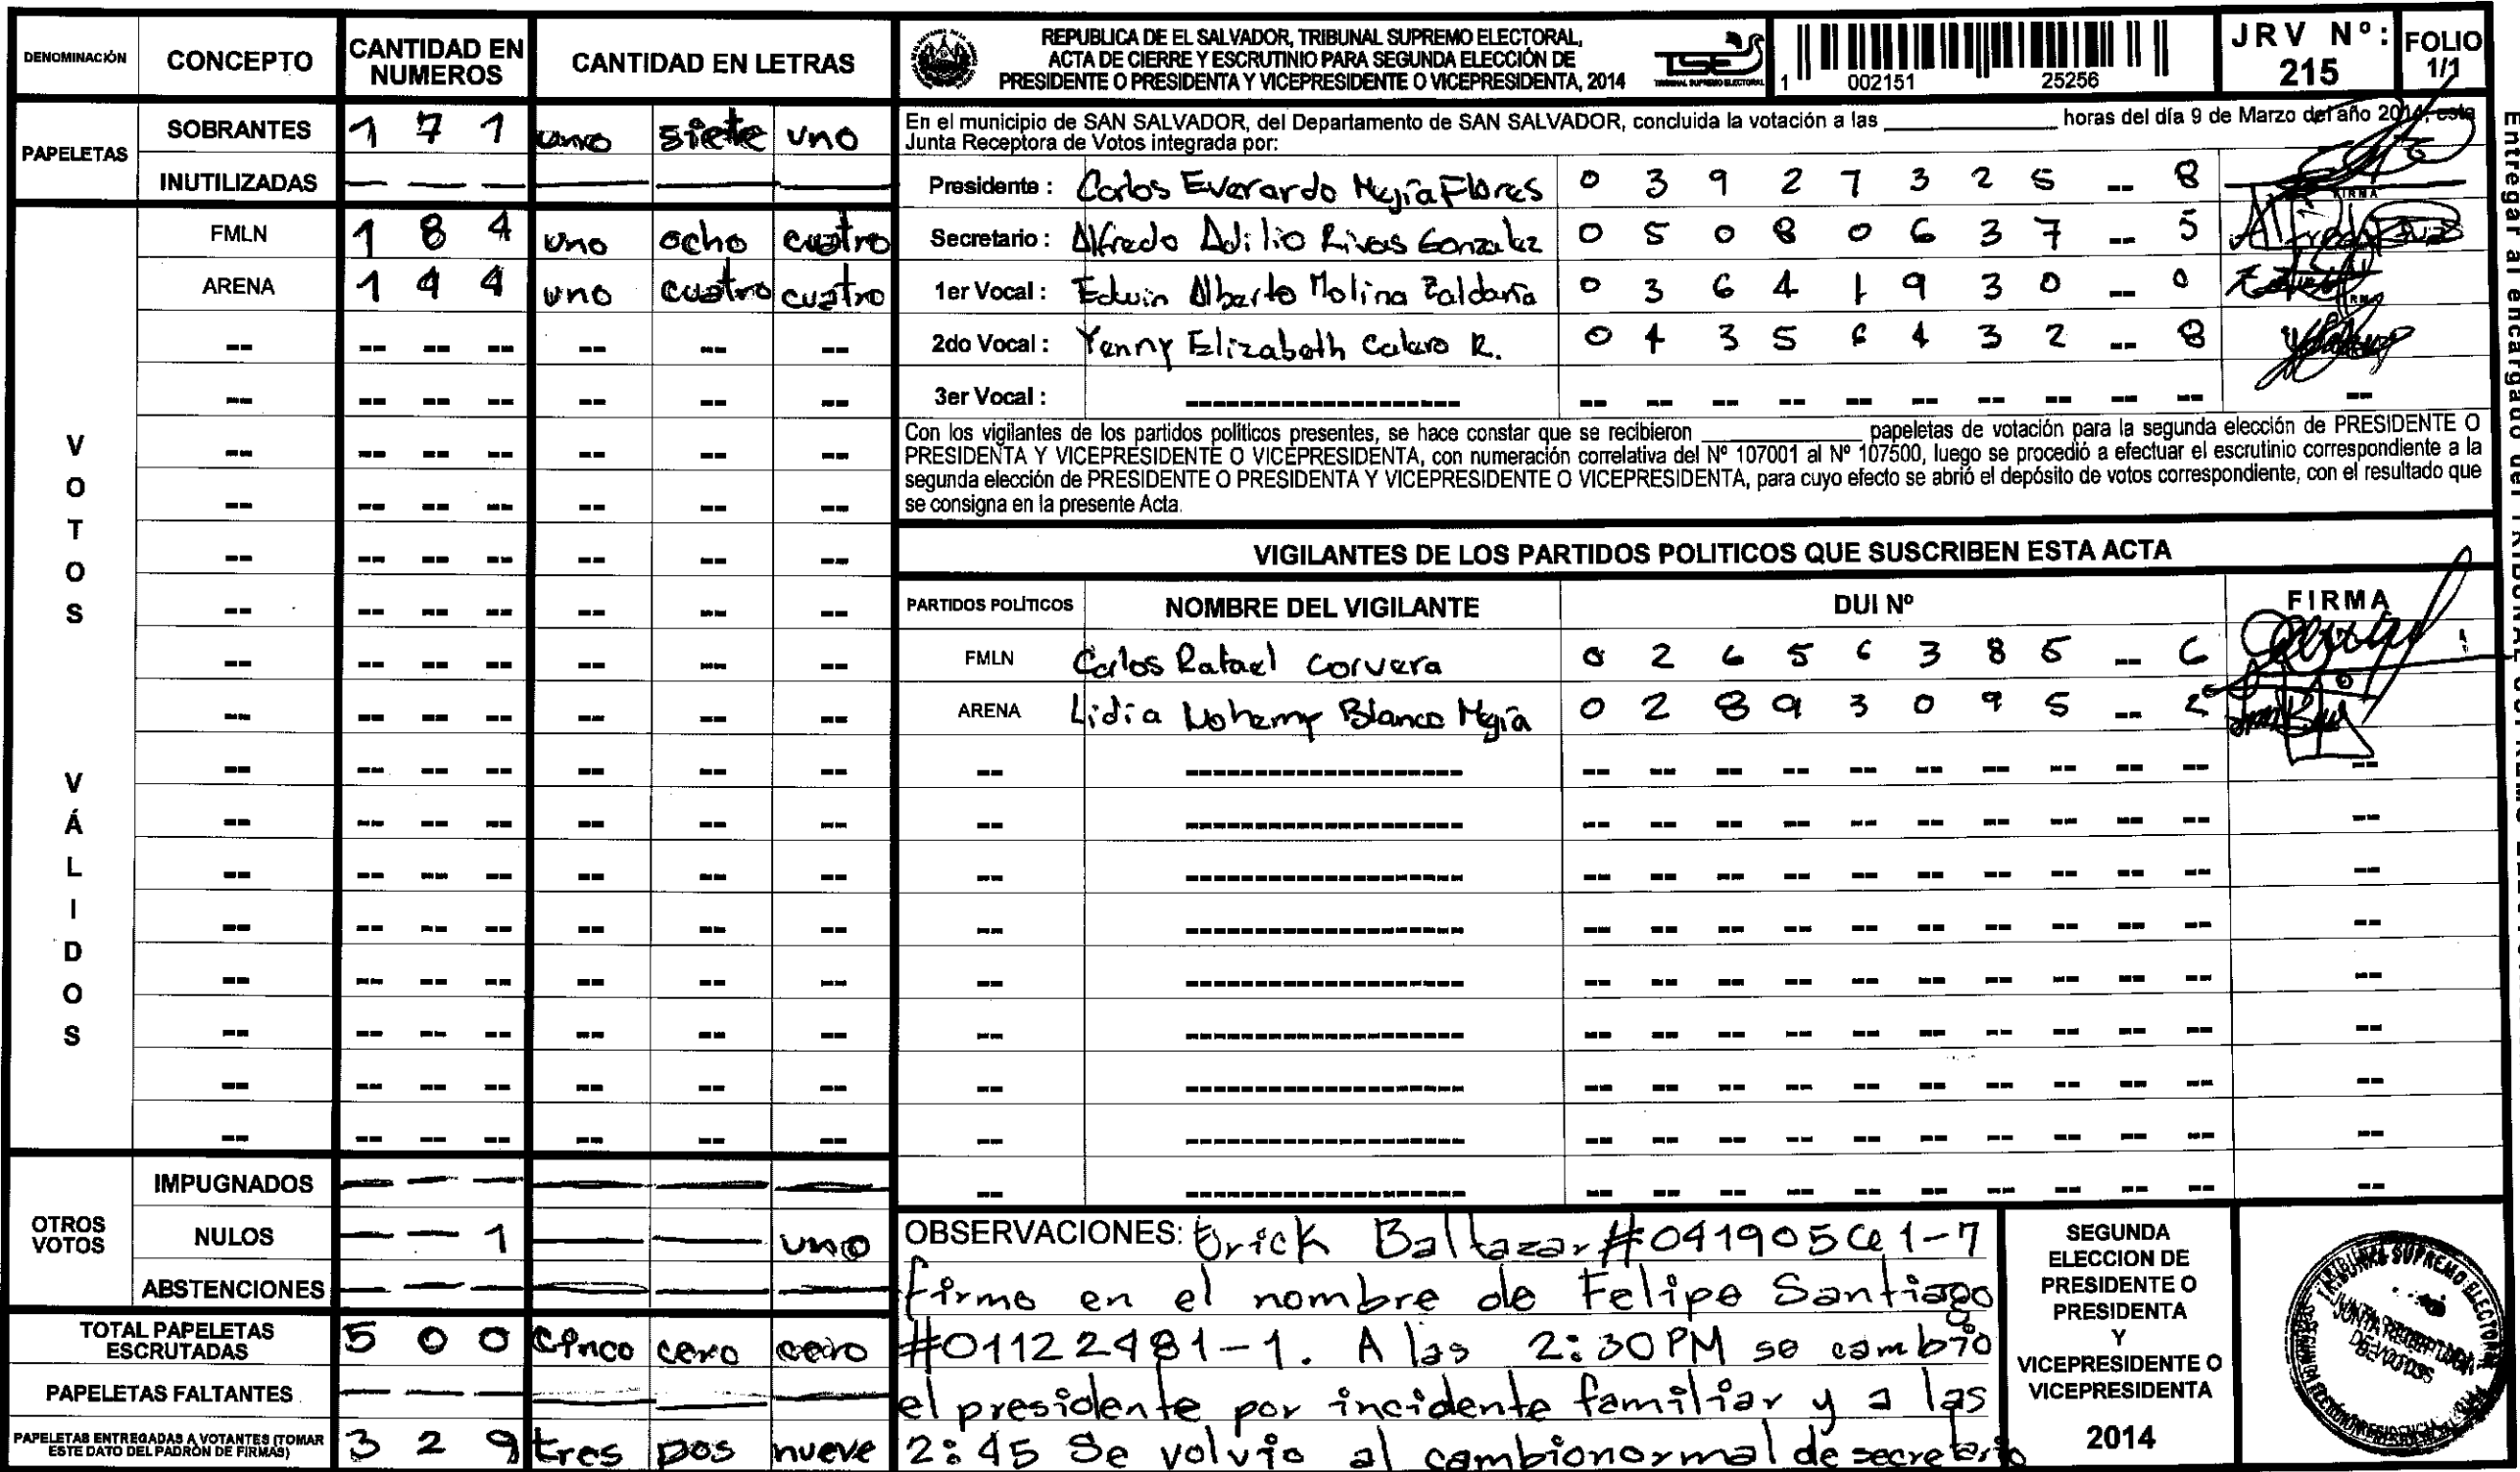 DENOMINACIÓN CONCEPTO CANTIDAD EN NUMEROS CANTIDAD EN LETRAS
PAPELETAS
SOBRANTES 1 7 1 uno siete uno
INUTILIZADAS — — — — — —
VOTOS VÁLIDOS
FMLN 1 8 4 uno ocho cuatro
ARENA 1 4 4 uno cuatro cuatro
OTROS VOTOS
IMPUGNADOS — — — — — —
NULOS — — 1 — — uno
ABSTENCIONES — — — — — —
TOTAL PAPELETAS ESCRUTADAS 5 0 0 cinco cero cero
PAPELETAS FALTANTES — — — — — —
PAPELETAS ENTREGADAS A VOTANTES (TOMAR ESTE DATO DEL PADRÓN DE FIRMAS) 3 2 9 tres dos nueve
REPUBLICA DE EL SALVADOR, TRIBUNAL SUPREMO ELECTORAL,
ACTA DE CIERRE Y ESCRUTINIO PARA SEGUNDA ELECCIÓN DE
PRESIDENTE O PRESIDENTA Y VICEPRESIDENTE O VICEPRESIDENTA, 2014
TSE
TRIBUNAL SUPREMO ELECTORAL
1 002151 25256
JRV Nº: 215
FOLIO 1/1
En el municipio de SAN SALVADOR, del Departamento de SAN SALVADOR, concluida la votación a las ____ horas del día 9 de Marzo del año 2014, esta
Junta Receptora de Votos integrada por:
Presidente : Carlos Everardo Mejía Flores 0 3 9 2 7 3 2 5 -- 8
Secretario : Alfredo Adilio Rivas Gonzalez 0 5 0 8 0 6 3 7 -- 5
1er Vocal : Edwin Alberto Molina 0 3 6 4 1 9 3 0 -- 0
2do Vocal : Yenny Elizabeth Calero R. 0 4 3 5 6 4 3 2 -- 8
3er Vocal :
Con los vigilantes de los partidos politicos presentes, se hace constar que se recibieron ____ papeletas de votación para la segunda elección de PRESIDENTE O
PRESIDENTA Y VICEPRESIDENTE O VICEPRESIDENTA, con numeración correlativa del Nº 107001 al Nº 107500, luego se procedió a efectuar el escrutinio correspondiente a la
segunda elección de PRESIDENTE O PRESIDENTA Y VICEPRESIDENTE O VICEPRESIDENTA, para cuyo efecto se abrió el depósito de votos correspondiente, con el resultado que
se consigna en la presente Acta.
VIGILANTES DE LOS PARTIDOS POLITICOS QUE SUSCRIBEN ESTA ACTA
PARTIDOS POLÍTICOS NOMBRE DEL VIGILANTE DUI Nº FIRMA
FMLN Carlos Rafael Corvera 0 2 6 5 6 3 8 5 -- 6
ARENA Lidia Nohemy Blanco Mejía 0 2 8 9 3 0 9 5 --
OBSERVACIONES: Erick Baltazar
firmo en el nombre de Felipe Santiago
#01122481-1. A las 2:30PM se cambio
el presidente por incidente familiar y a las
2:45 Se volvio al cambio normal de secretario
SEGUNDA
ELECCION DE
PRESIDENTE O
PRESIDENTA
Y
VICEPRESIDENTE O
VICEPRESIDENTA
2014
TRIBUNAL SUPREMO ELECTORAL
JUNTA RECEPTORA
DE VOTOS